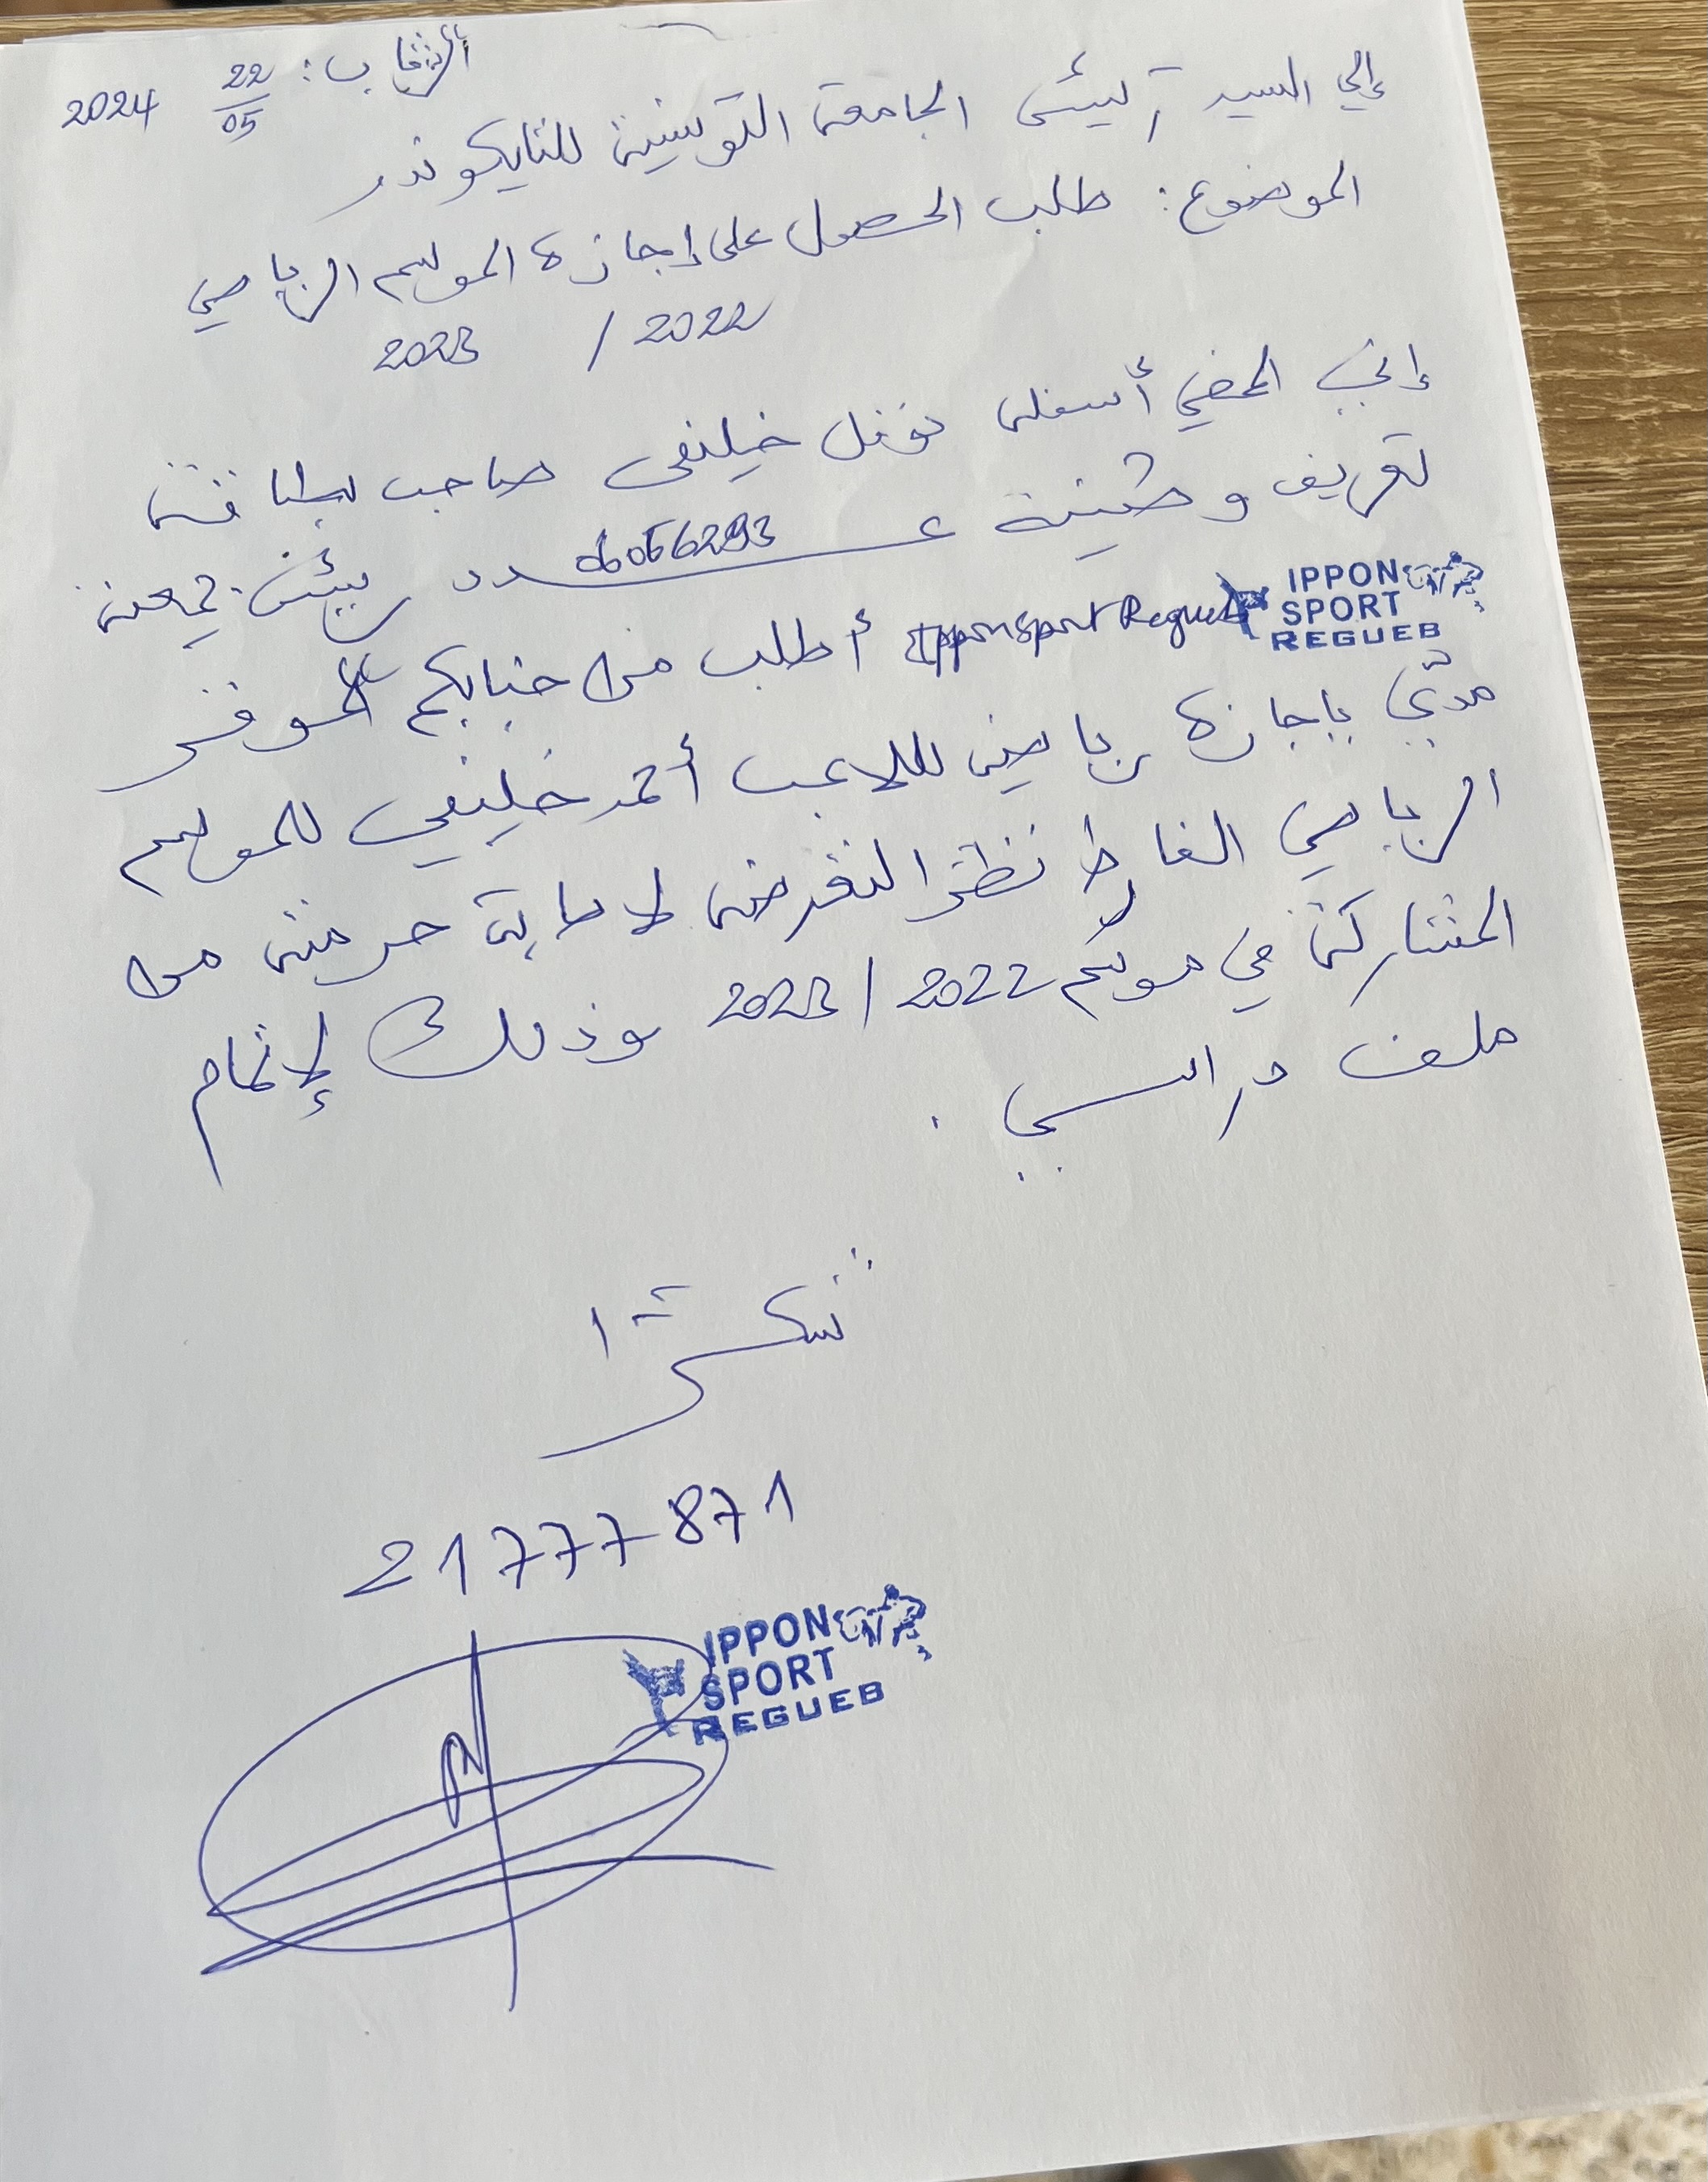 الرقاب: 22/05 2024
إلي السيد رئيس الجامعة التونسية للتايكوندر
الموضوع: طلب الحصول على إجازة الموسم الرياضي
2022 / 2023
إني الممضي أسفله نوفل خليفي صاحب بطاقة
تعريف وطنية عدد 06056293 رئيس جمعية
IPPON SPORT REGUEB
Ippon Sport Regueb أطلب من جنابكم الموقر
مدّي بإجازة رياضية لللاعب أحمد خليفي للموسم
الرياضي الفارط نظرا لتعرضه لإصابة حرمته من
المشاركة في موسم 2022 / 2023 وذلك لإتمام
ملف دراسي .
شكرا
21777871
IPPON
SPORT
REGUEB